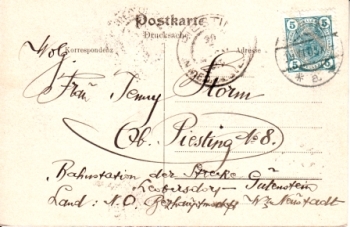 Postkarte
Drucksache.
Korrespondenz
Adresse
5 5
5 5
Frau Jenny Storm
Ob. Piesting No 8.
Bahnstation der Strecke
Leobersdorf - Gutenstein
Land: N.O. Wr. Neustadt